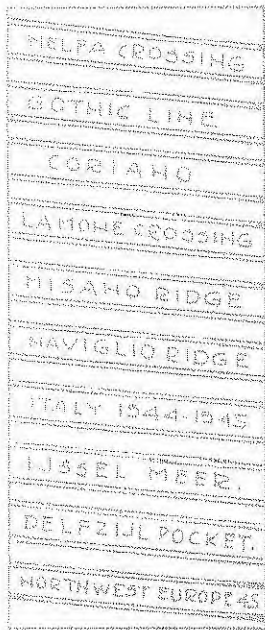 MELFA CROSSING
GOTHIC LINE
CORIANO
LAMONE CROSSING
MISANO RIDGE
NAVIGLIO RIDGE
ITALY 1944-1945
IJSSEL MEER.
DELFZIJL POCKET.
NORTHWEST EUROPE 45